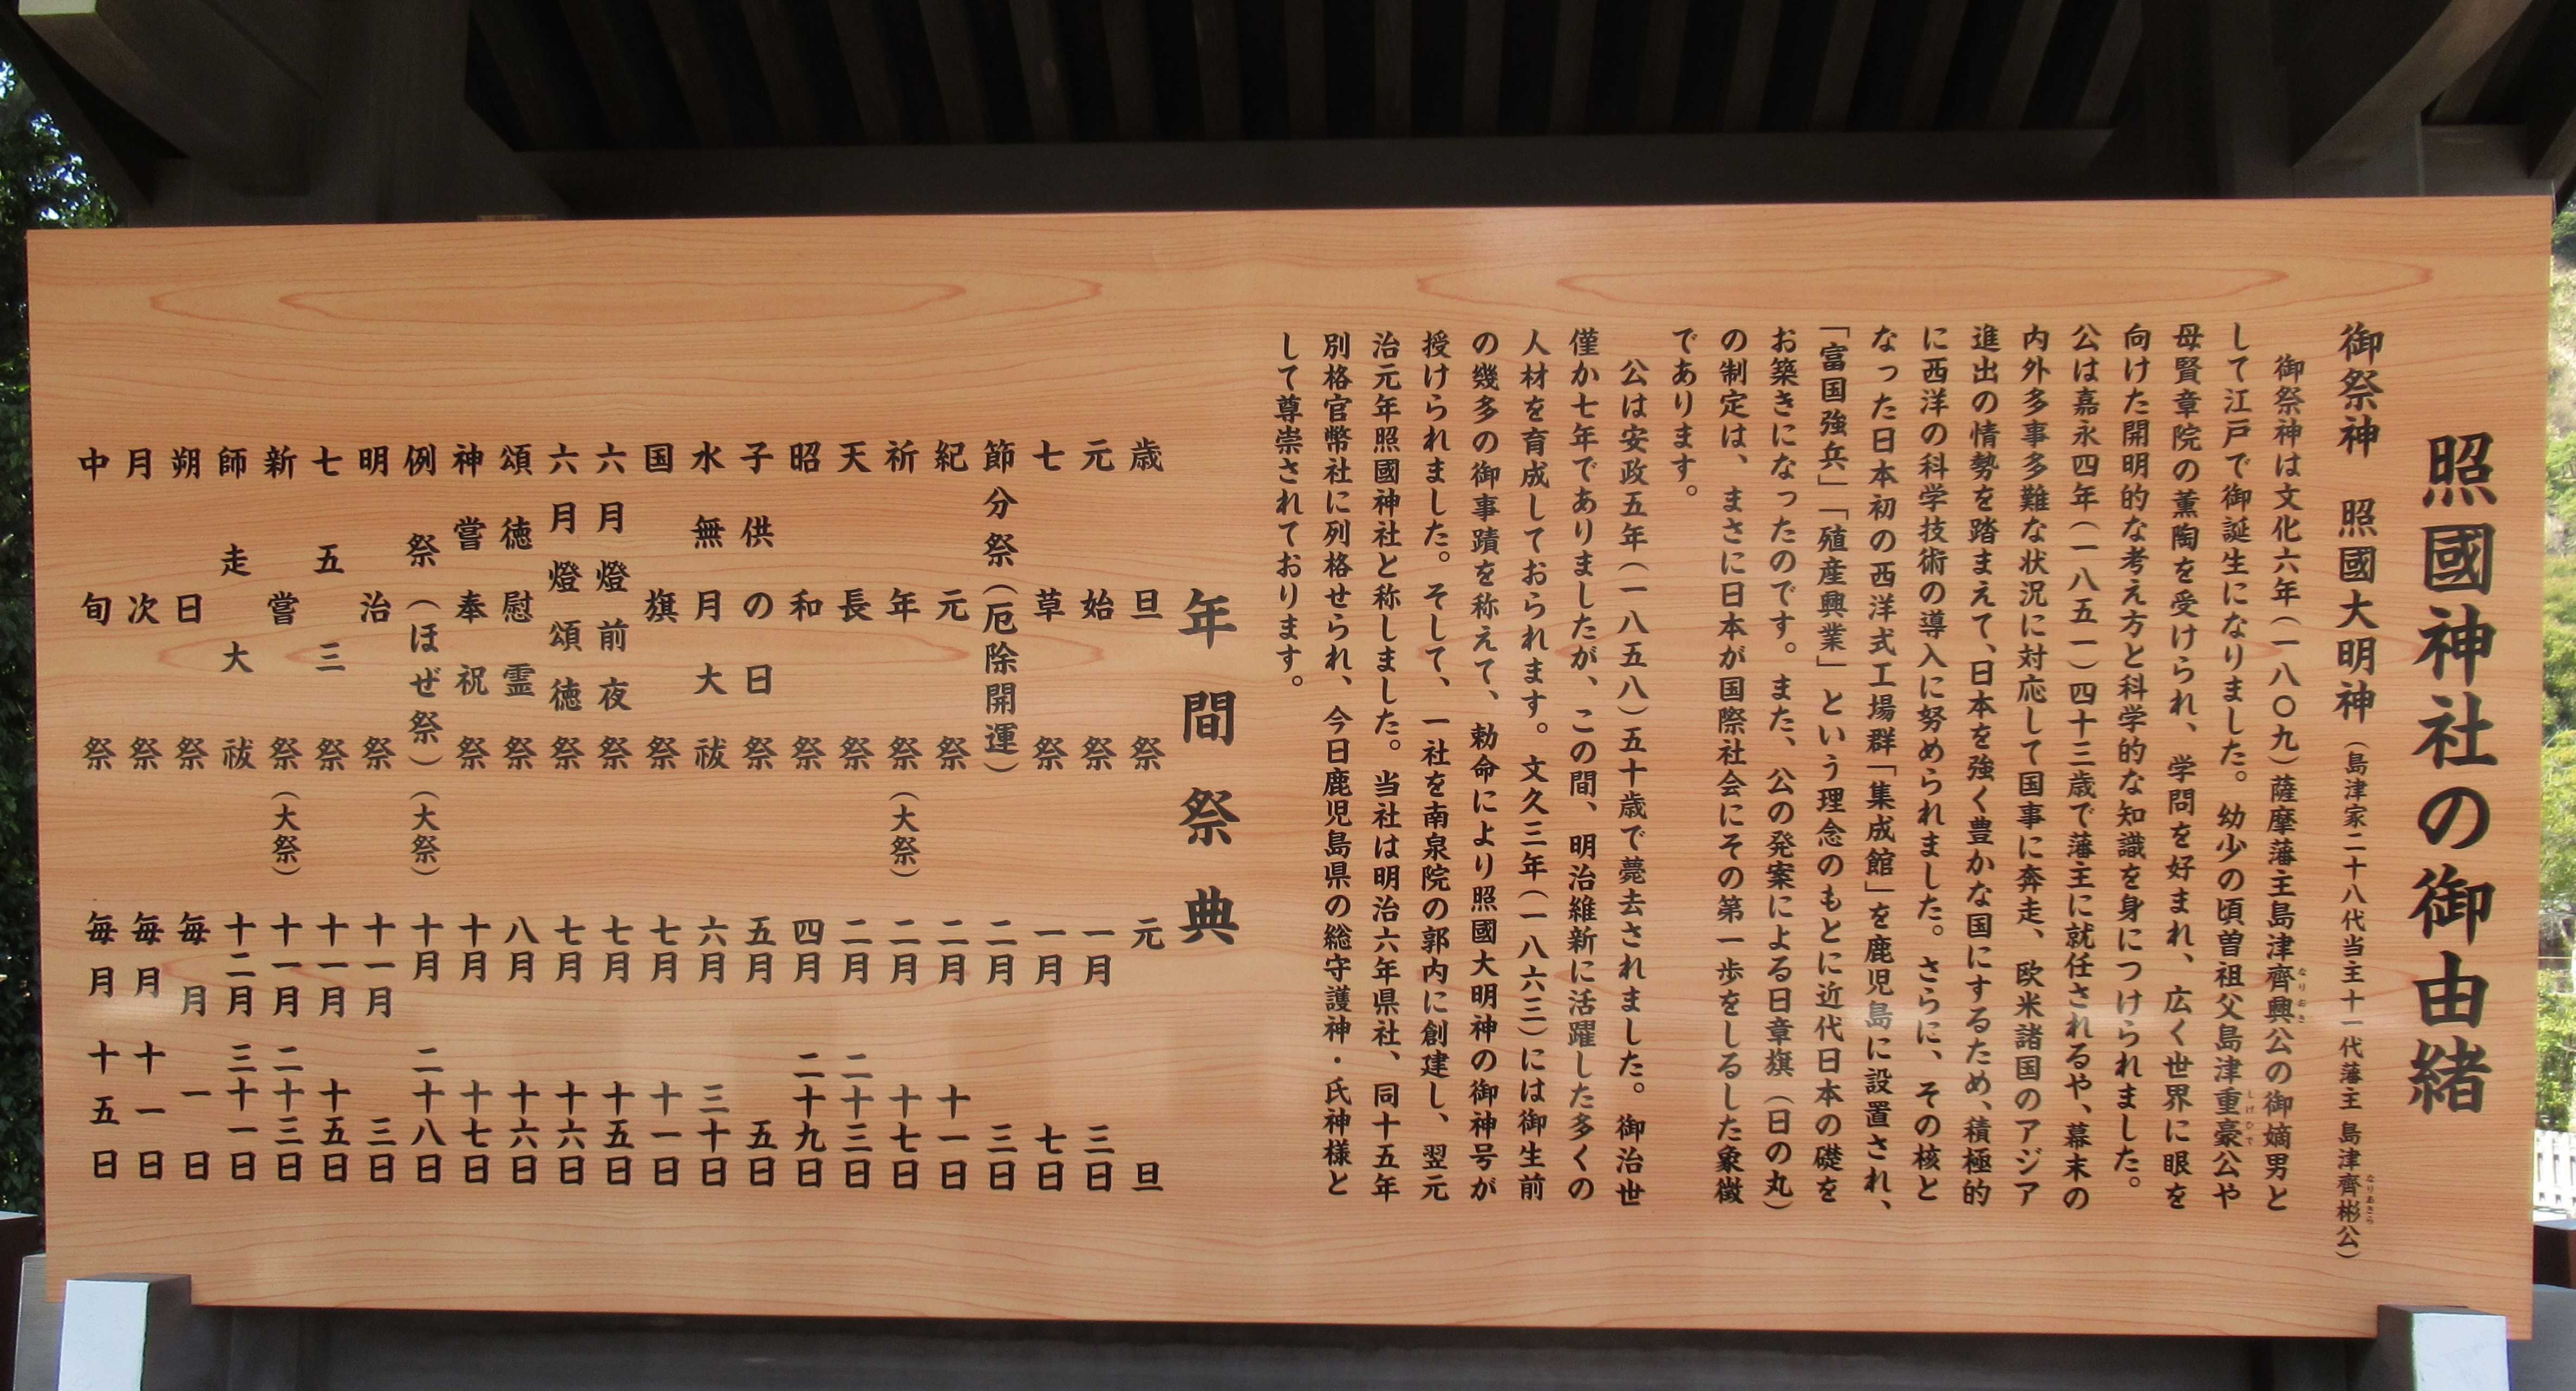 照國神社の御由緒
御祭神　照國大明神（島津家二十八代当主十一代藩主 島津齊彬公）
なりあきら
御祭神は文化六年（一八〇九）薩摩藩主島津齊興公の御嫡男と
なりおき
して江戸で御誕生になりました。幼少の頃曽祖父島津重豪公や
しげひで
母賢章院の薫陶を受けられ、学問を好まれ、広く世界に眼を
向けた開明的な考え方と科学的な知識を身につけられました。
公は嘉永四年（一八五一）四十三歳で藩主に就任されるや、幕末の
内外多事多難な状況に対応して国事に奔走、欧米諸国のアジア
進出の情勢を踏まえて、日本を強く豊かな国にするため、積極的
に西洋の科学技術の導入に努められました。さらに、その核と
なった日本初の西洋式工場群「集成館」を鹿児島に設置され、
「富国強兵」「殖産興業」という理念のもとに近代日本の礎を
お築きになったのです。また、公の発案による日章旗（日の丸）
の制定は、まさに日本が国際社会にその第一歩をしるした象徴
であります。
公は安政五年（一八五八）五十歳で薨去されました。御治世
僅か七年でありましたが、この間、明治維新に活躍した多くの
人材を育成しておられます。文久三年（一八六三）には御生前
の幾多の御事蹟を称えて、勅命により照國大明神の御神号が
授けられました。そして、一社を南泉院の郭内に創建し、翌元
治元年照國神社と称しました。当社は明治六年県社、同十五年
別格官幣社に列格せられ、今日鹿児島県の総守護神・氏神様と
して尊崇されております。
年間祭典
歳旦祭　元旦
元始祭　一月三日
七草祭　一月七日
節分祭（厄除開運）　二月三日
紀元祭　二月十一日
祈年祭（大祭）　二月十七日
天長祭　二月二十三日
昭和祭　四月二十九日
子供の日祭　五月五日
水無月大祓　六月三十日
国旗祭　七月十一日
六月燈前夜祭　七月十五日
六月燈頌徳祭　七月十六日
頌徳慰霊祭　八月十六日
神嘗奉祝祭　十月十七日
例祭（ほぜ祭）（大祭）　十月二十八日
明治祭　十一月三日
七五三祭　十一月十五日
新嘗祭（大祭）　十一月二十三日
師走大祓　十二月三十一日
朔日祭　毎月一日
月次祭　毎月十一日
中旬祭　毎月十五日